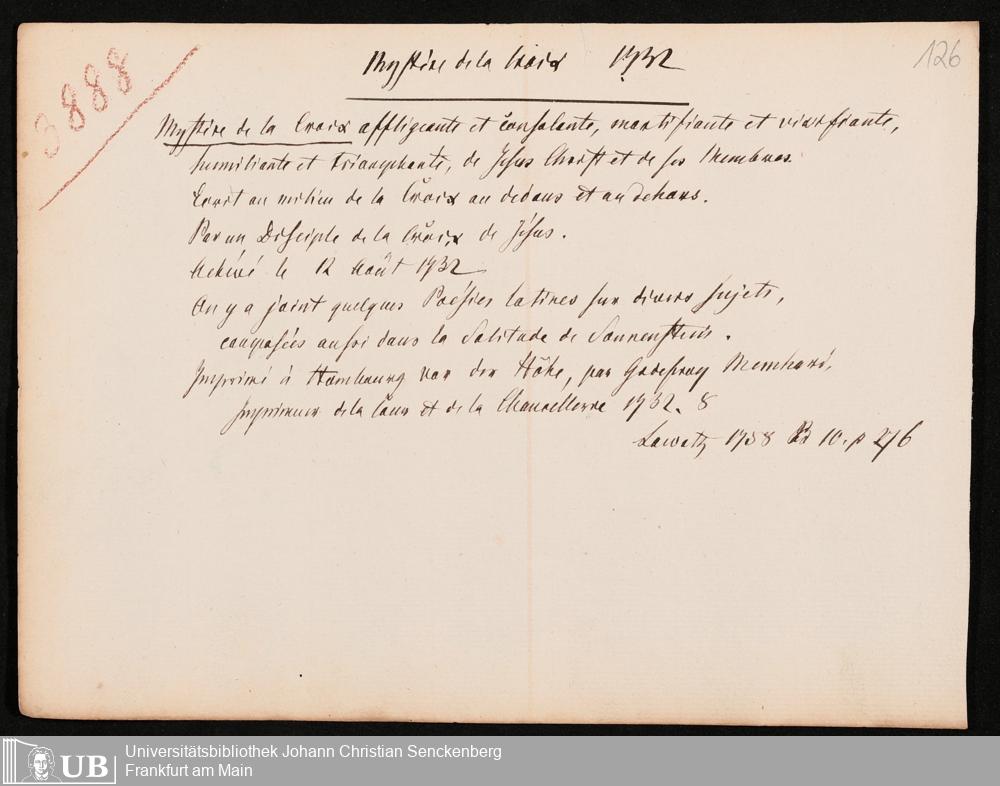 3888
126
Mystère de la Croix 1732
Mystère de la Croix affligeante et consolante, mortifiante et vivifiante,
humiliante et triomphante, de Jésus Christ et de ses Membres.
Ecrit au milieu de la Croix au dedans et au dehors.
Par un Disciple de la Croix de Jésus.
Achévé le 12 Août 1732
On y a joint quelques Poésies latines sur divers sujets,
composées aussi dans la Solitude de Sonnenstein.
Imprimé à Hombourg vor der Höhe, par Godefroy
Imprimeur de la Cour et de la Chancellerie 1732. 8
Lawatz 1758 Bd 10. p 276
UB
Universitätsbibliothek Johann Christian Senckenberg
Frankfurt am Main